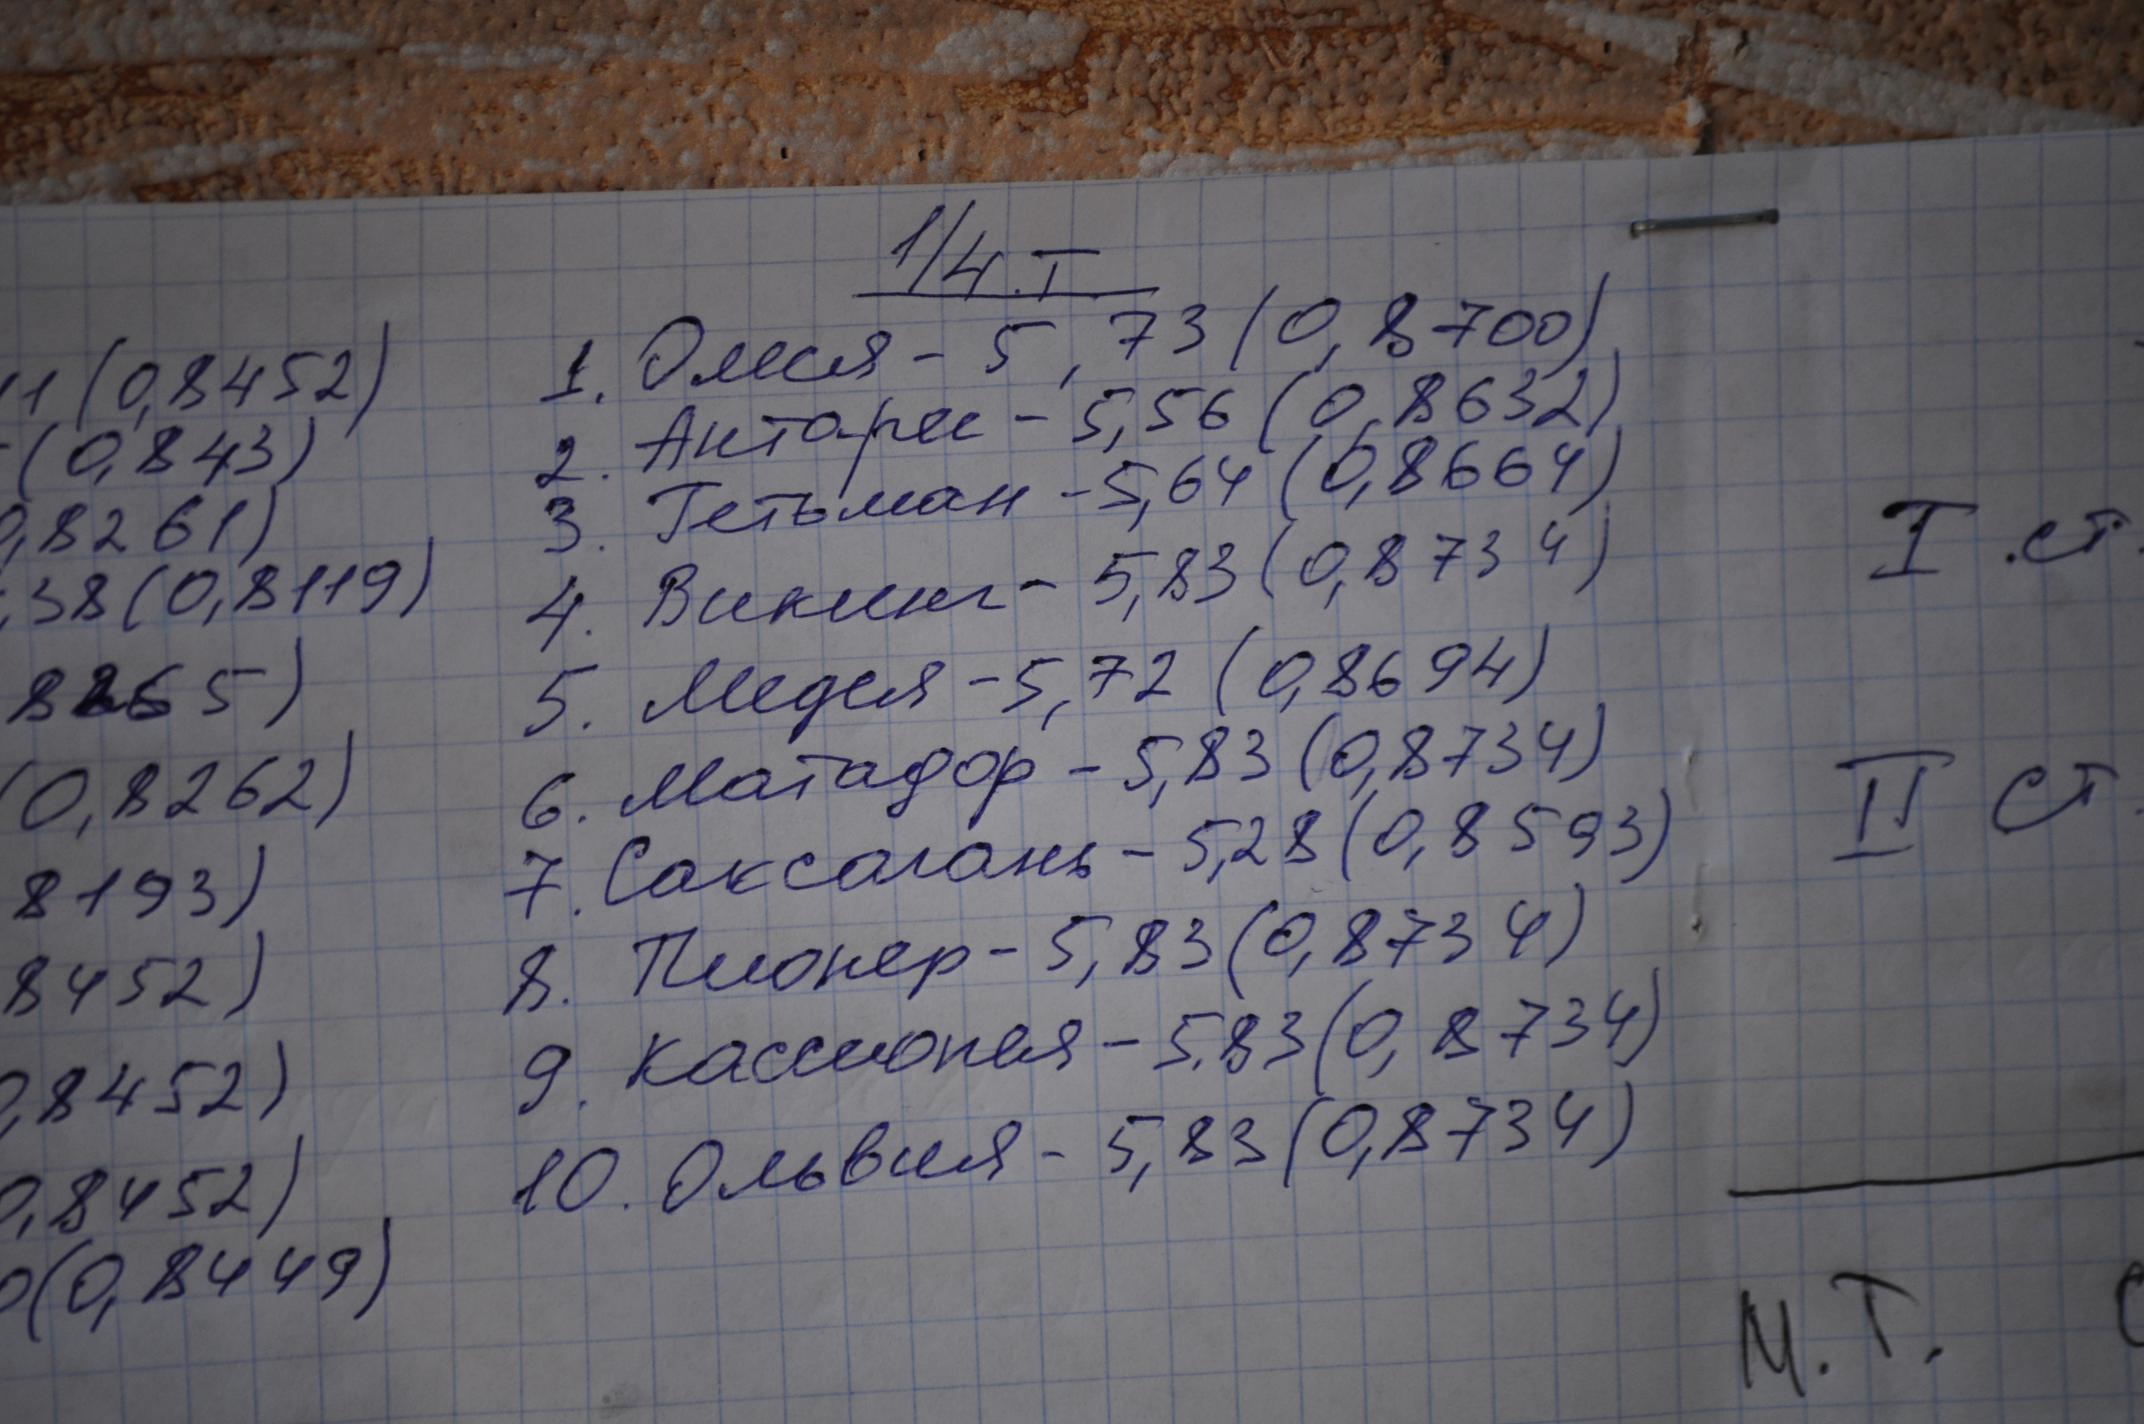 1/4 I
11 (0,8452)
(0,843)
0,8261)
,38 (0,8119)
8265)
(0,8262)
8193)
8452)
0,8452)
0,8452)
0(0,8449)
1. Олися - 5,73 (0,8700)
2. Антарес - 5,56 (0,8632)
3. Гетьман - 5,64 (0,8664)
4. Викинг - 5,83 (0,8734)
5. Медея - 5,72 (0,8694)
6. Матадор - 5,83 (0,8734)
7. Саксагань - 5,28 (0,8593)
8. Пионер - 5,83 (0,8734)
9. Кассиопея - 5.83 (0,8734)
10. Ольвия - 5,83 (0,8734)
I .ст.
II ст.
М.Т.